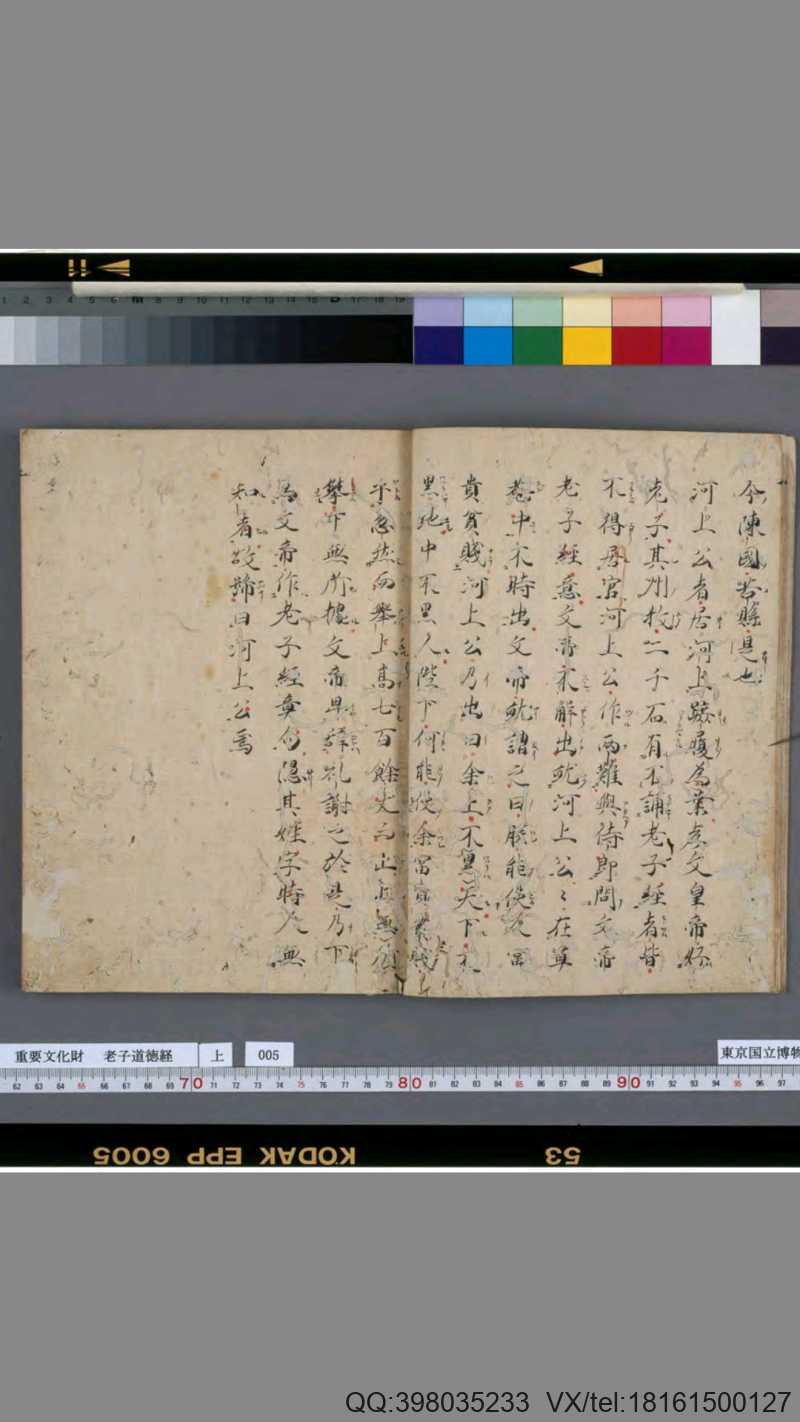 今陳國苦縣是也
河上公者居河上踐履為業孝文皇帝好
老子其州牧二千石有不誦老子經者皆
不得居官河上公作兩難與侍郎問文帝
老子經意文帝不解出就河上公〻在草
菴中不時出文帝就謂之曰朕能使人富
貴貧賤河上公乃出曰余上不累天下不
累地中不累人陛下何能使余富貴貧賤
乎忽然而舉上高七百餘丈而止上無所
攀下無所據文帝卑辭礼謝之於是乃下
為文帝作老子經章句隱其姓字時人無
知者故號曰河上公焉
重要文化財 老子道徳経 上 005
東京国立博物
KODAK EPP 6005 53
QQ:398035233 VX/tel:18161500127